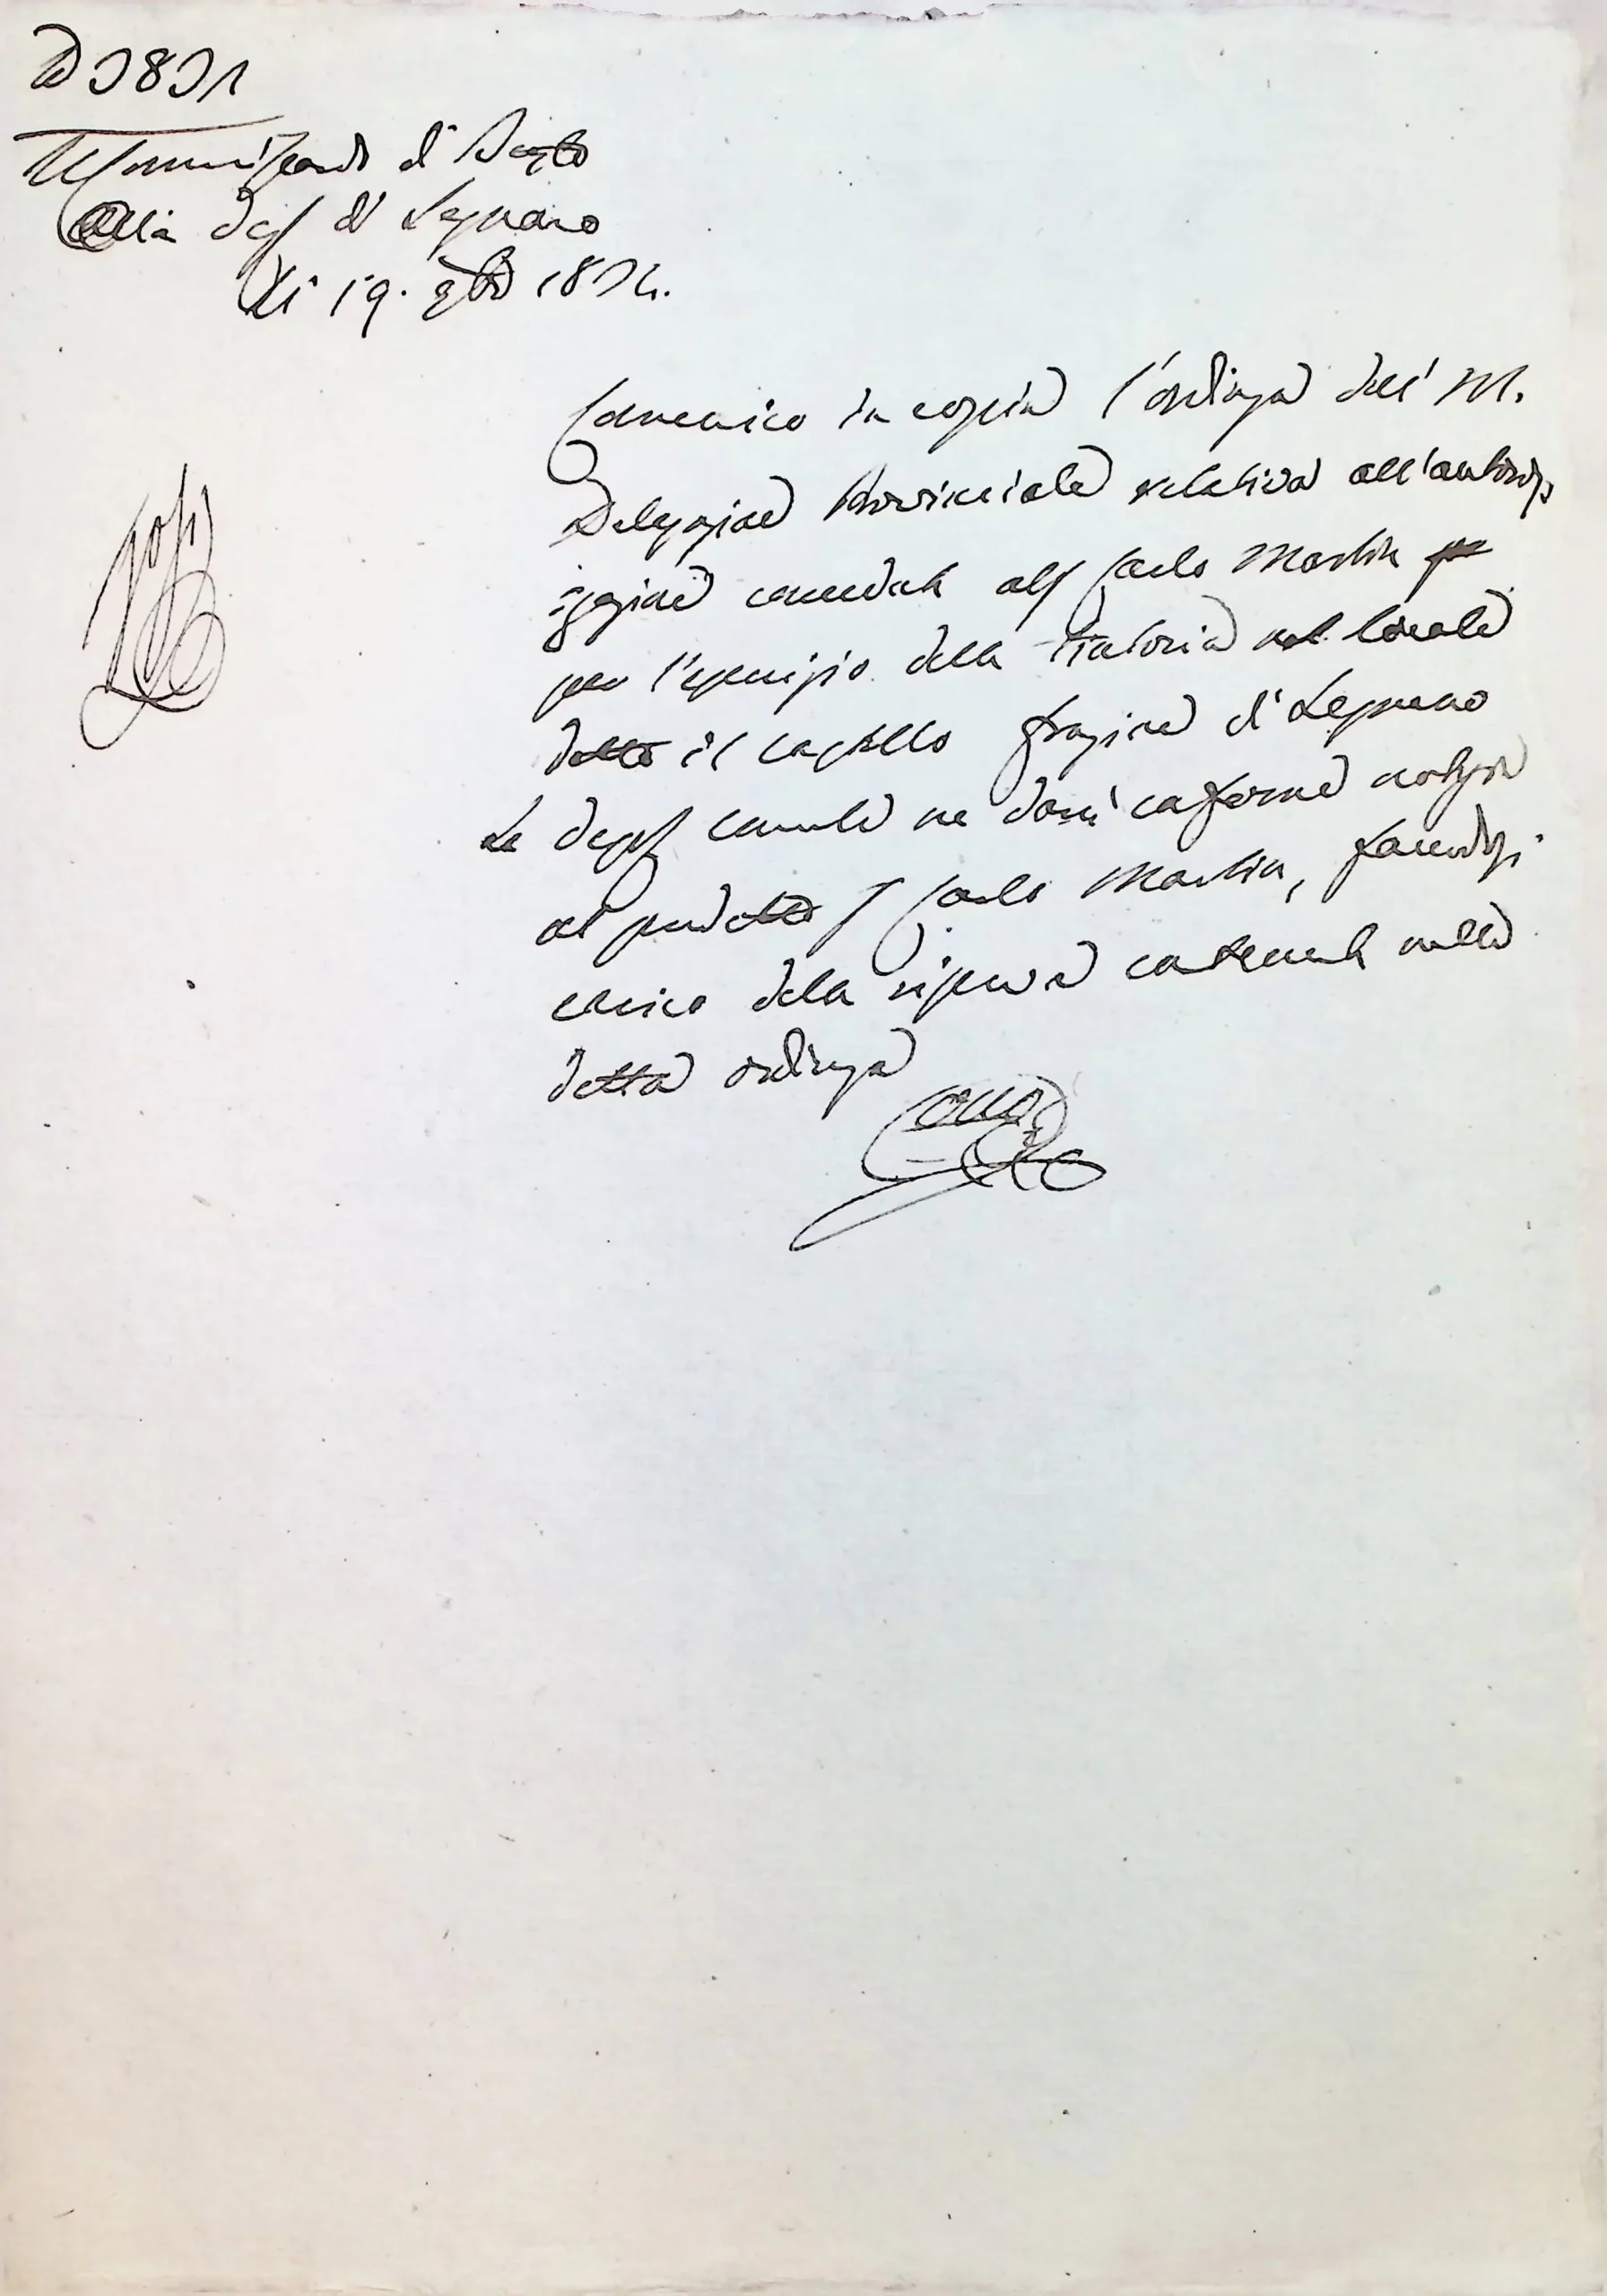 Il Commissario di Busto
Alla Dep di Legnano
Li 19. 9bre 183
Comunico in copia l'ordinza dell' I. R.
Delegazione Provinciale relativa all'autoriz
izazione conceduta al Sr Carlo Martin
per l'esercizio della Tintoria nel locale
detto il Castello frazione di Legnano
La Depne Comunale ne darà conforme notizia
al predetto Sr Carlo Martin, facendosi
carico della riserva contenuta nella
detta ordinza